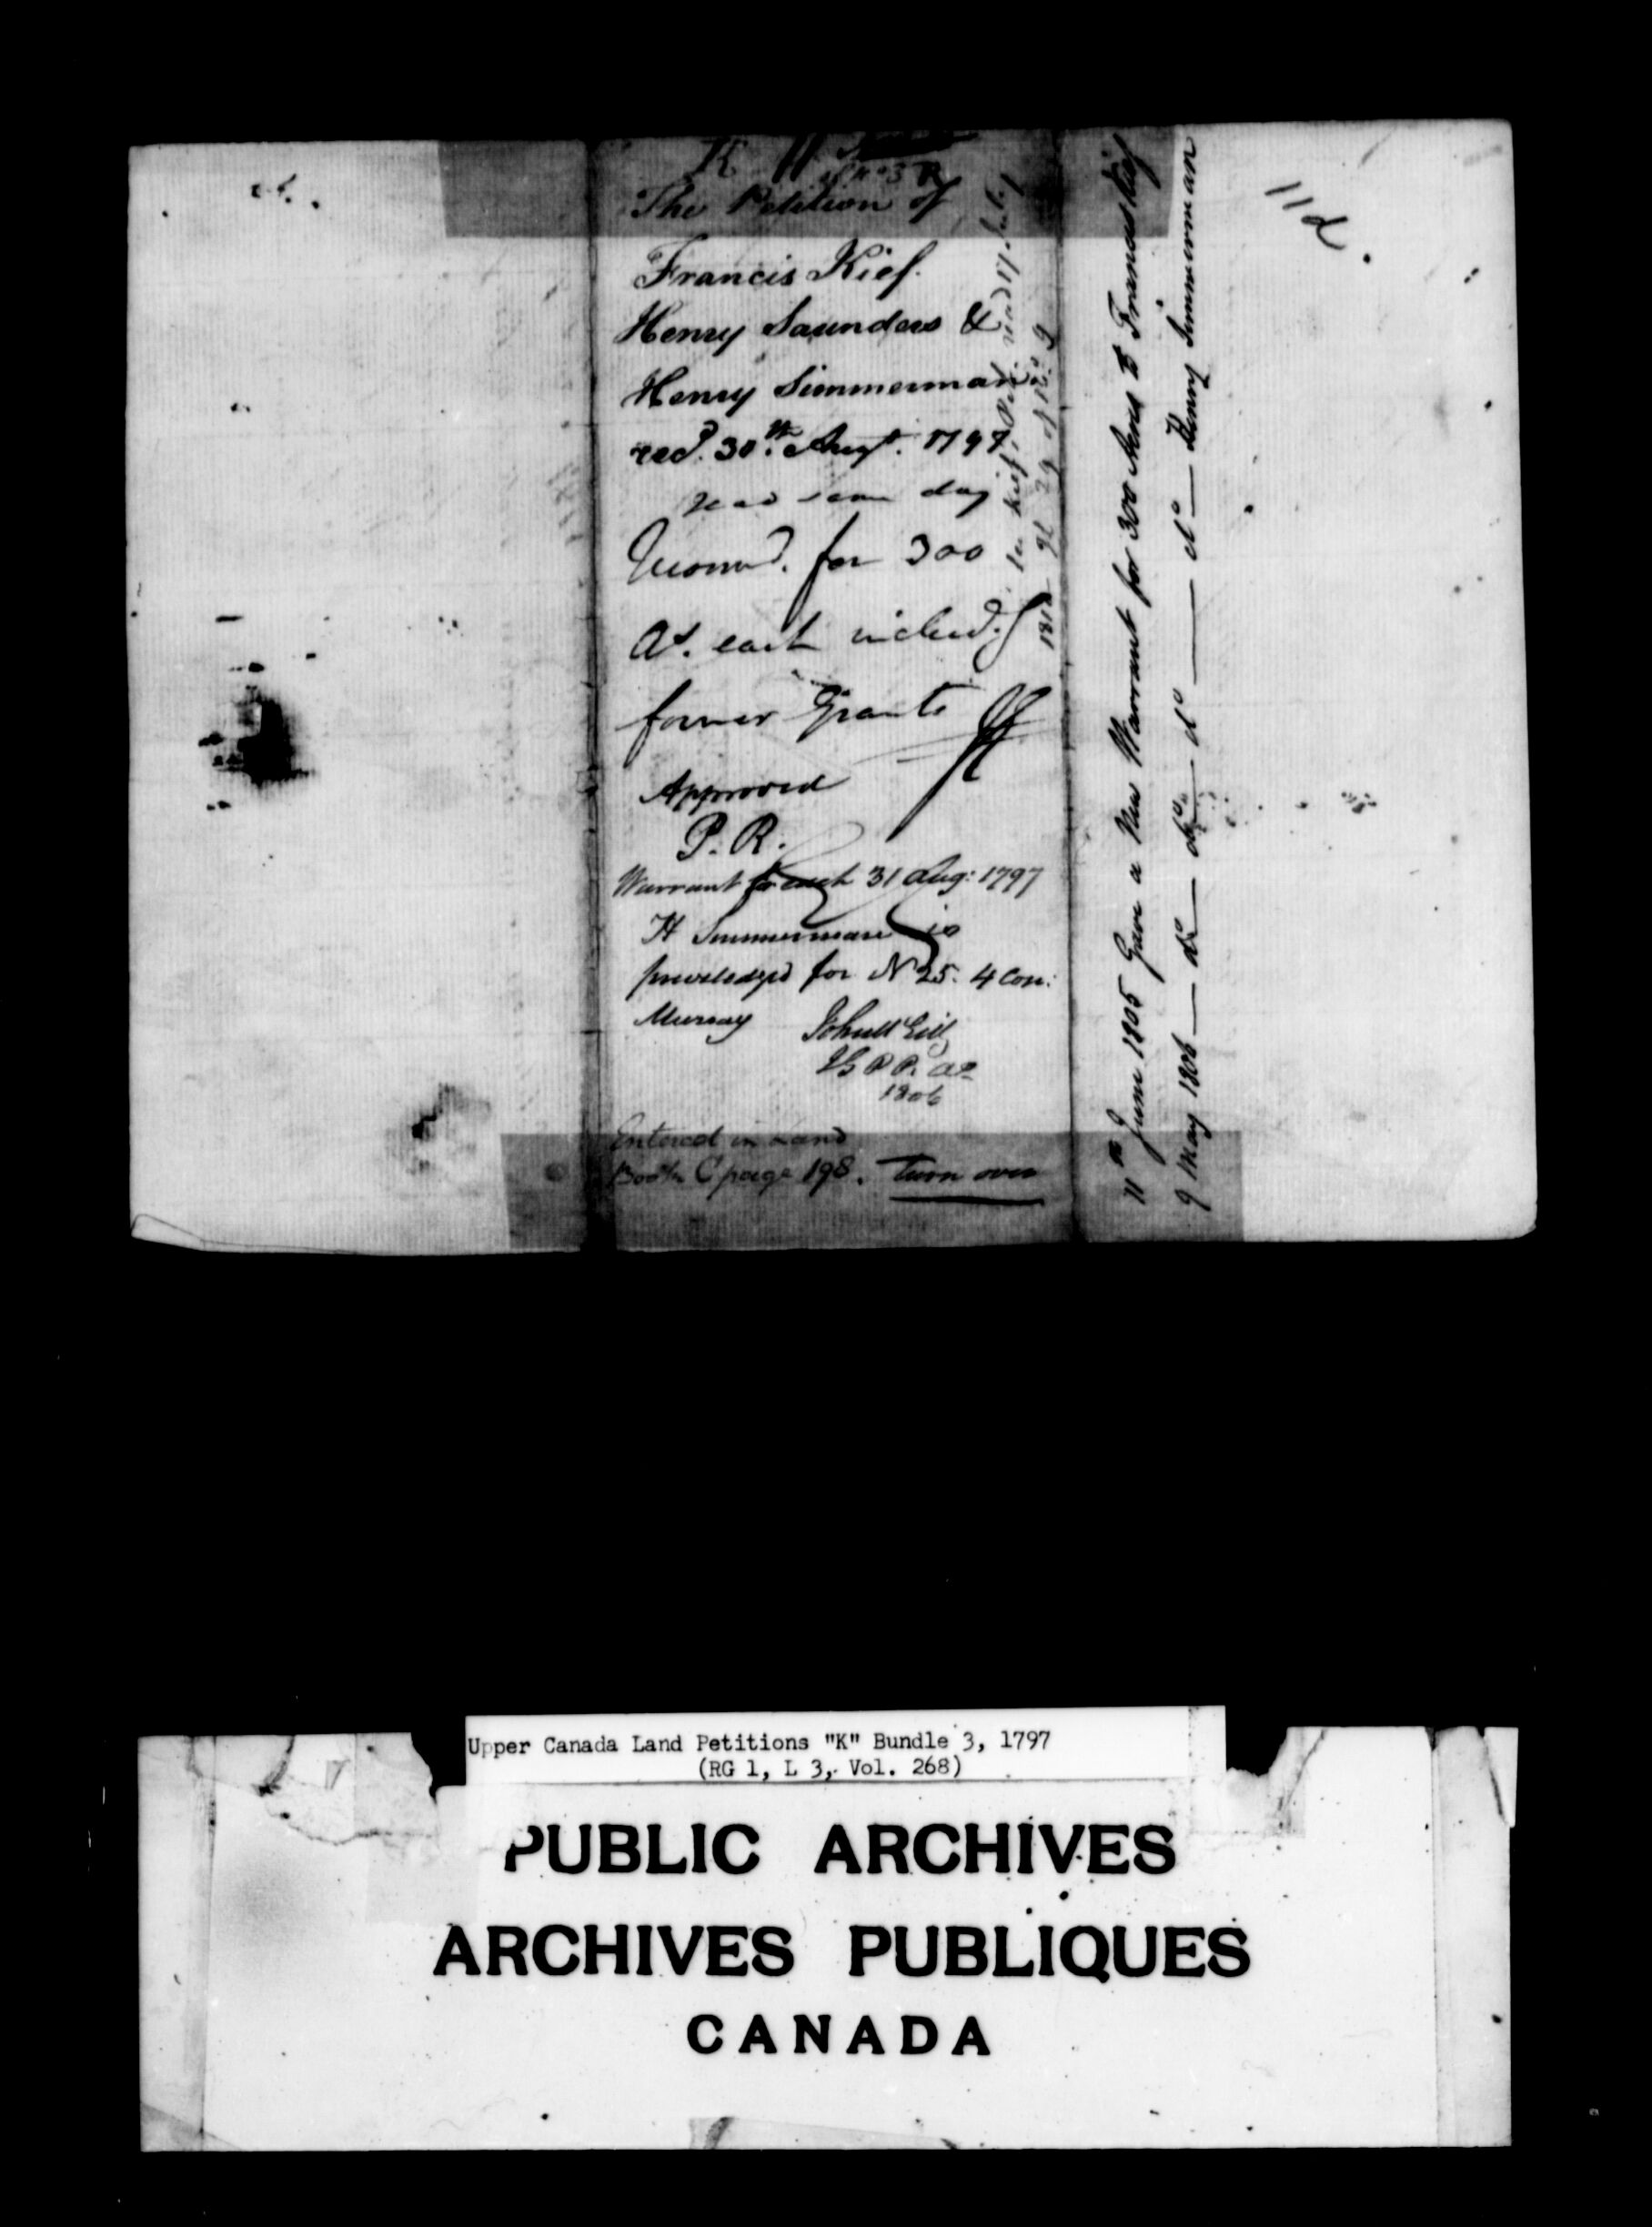 K 11
No 3 R
The Petition of
Francis Kief.
Henry Saunders &
Henry Simmerman
recd. 30th. Augt. 1797
read same day
Recomd. for 300
As. each includg
former Grants
Approved
P. R.
Warrant for each 31 Aug: 1797
H Simmerman is
priviledged for N 25. 4 Con:
Murray John McGill
IG P P. as
1806
Entered in Land
Book C page 198. Turn over
11th June 1805 Gave a New Warrant for 300 Acres to Francis Kief
9 May 1806 — do — do — do — do — Henry Simmerman
11d.
Upper Canada Land Petitions "K" Bundle 3, 1797
(RG 1, L 3, Vol. 268)
PUBLIC ARCHIVES
ARCHIVES PUBLIQUES
CANADA